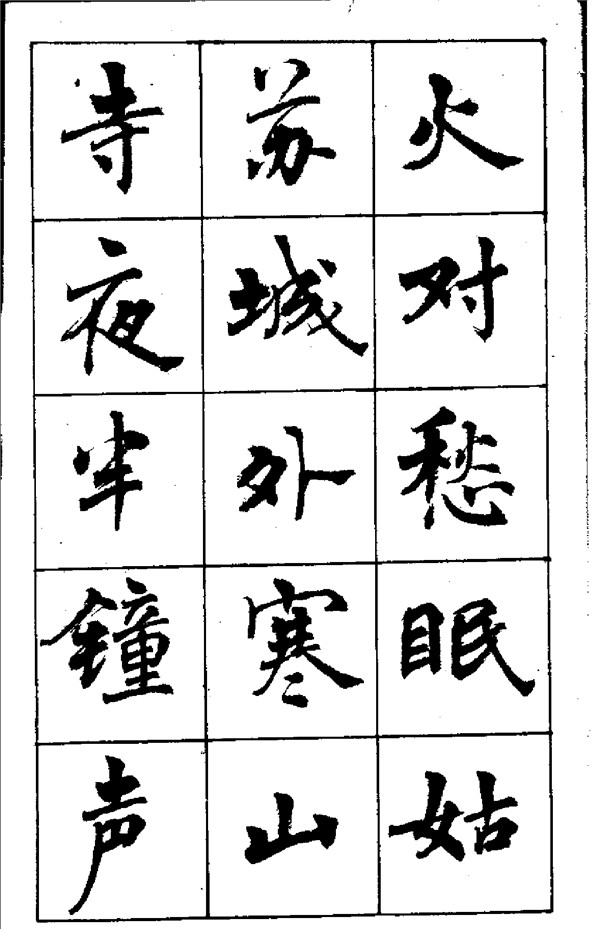 火对愁眠姑
苏城外寒山
寺夜半鐘声